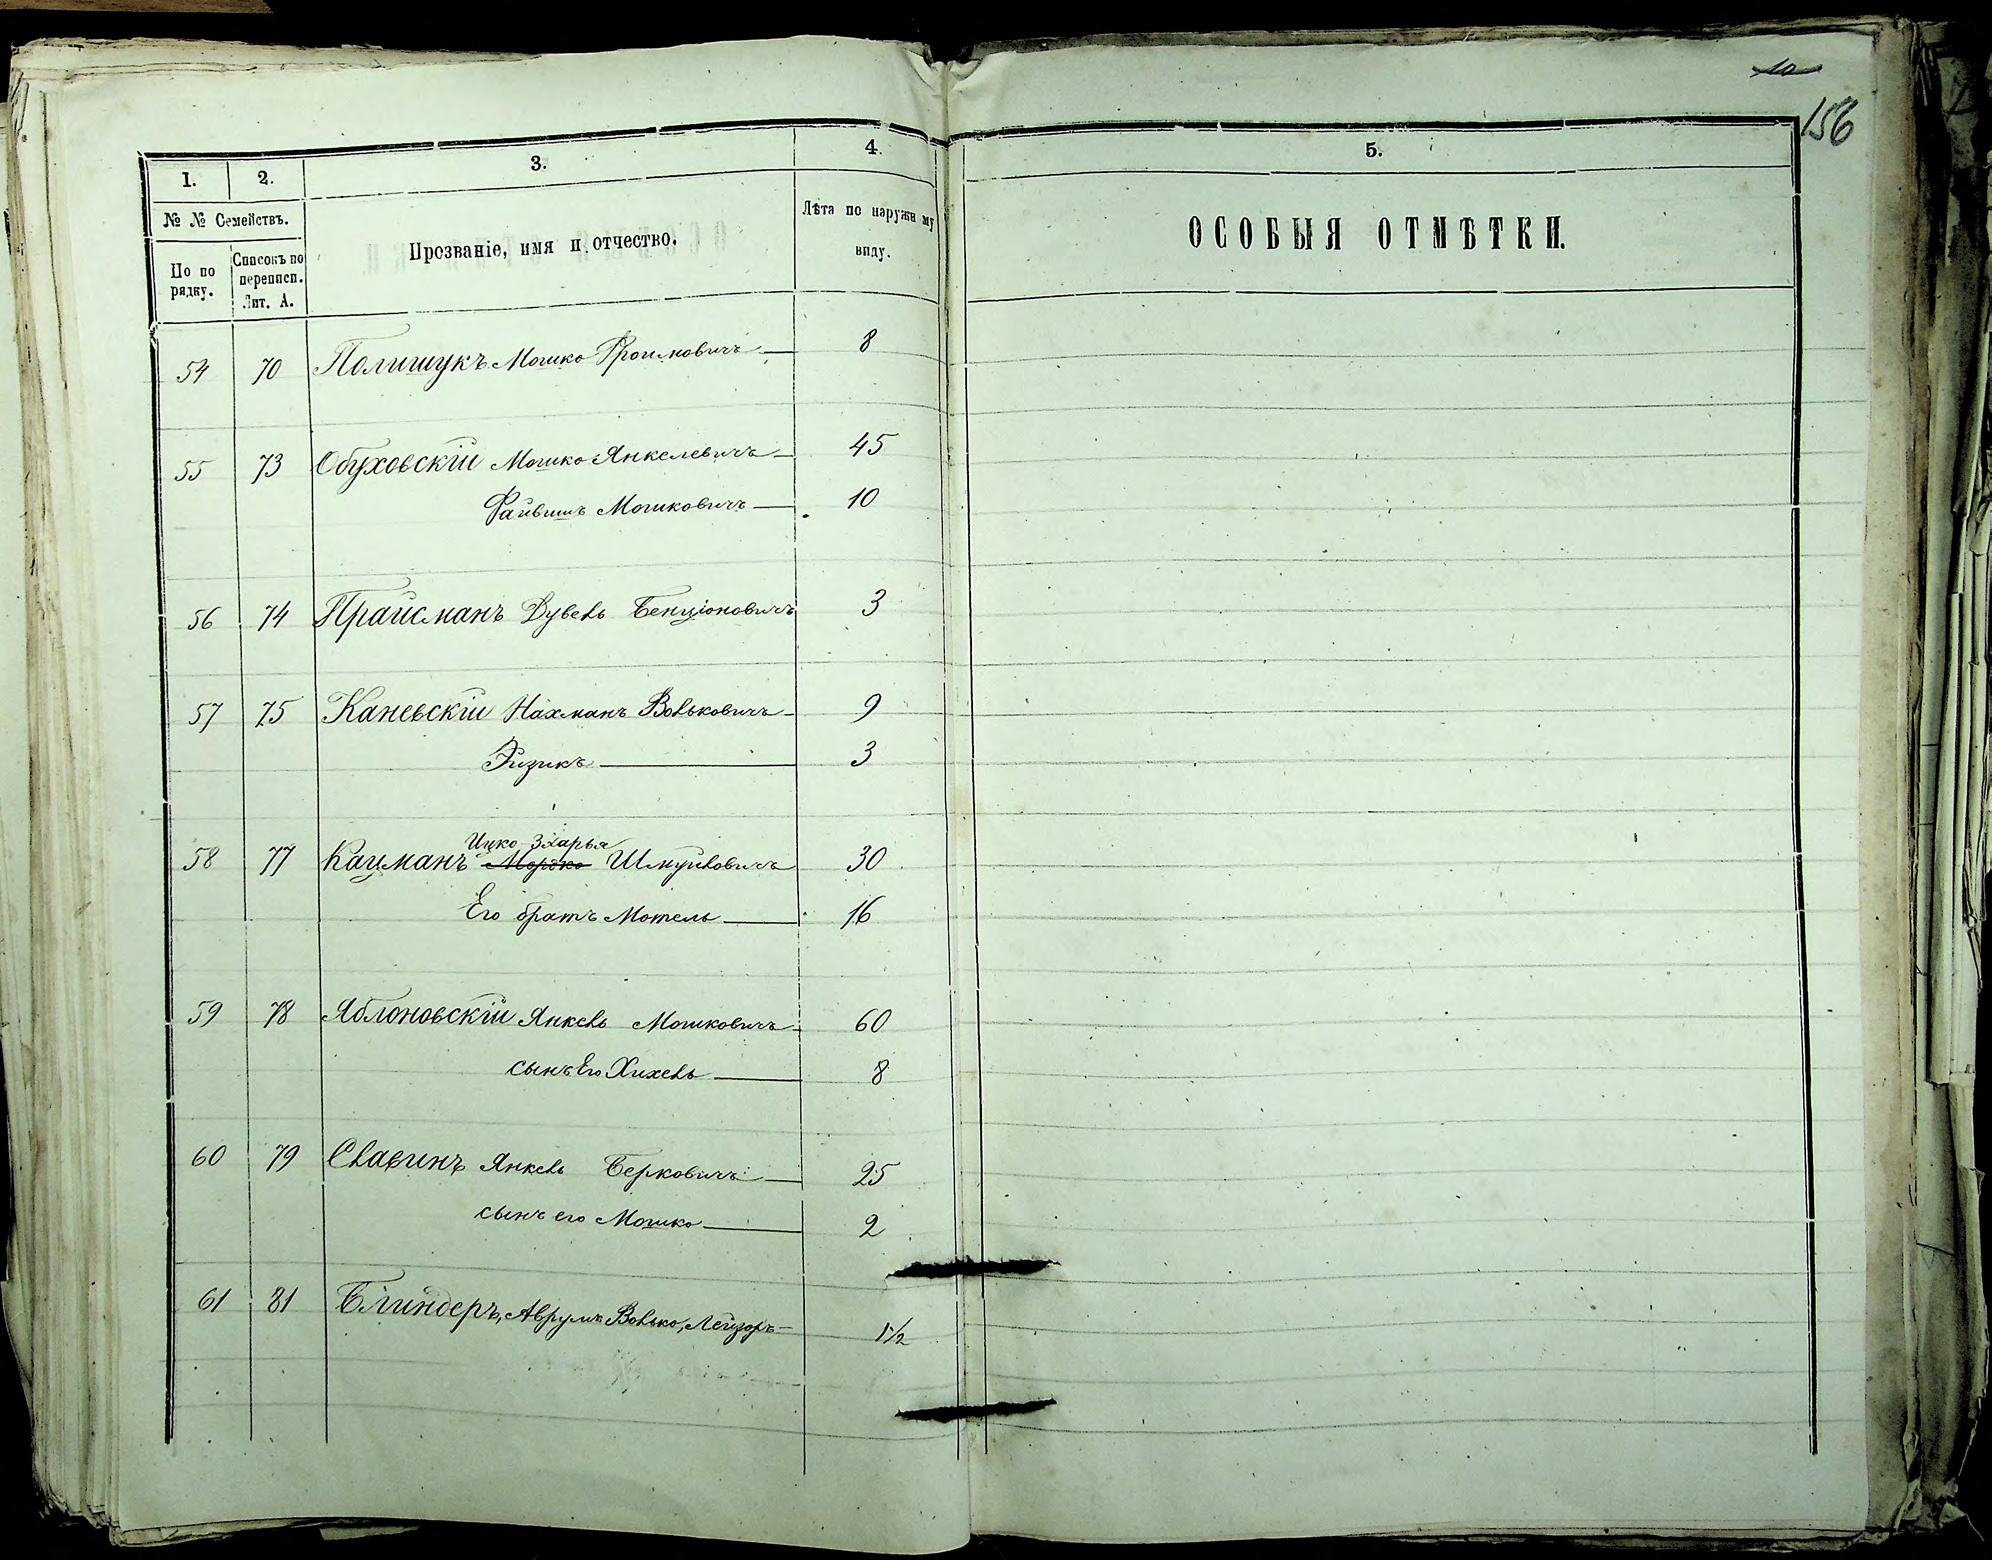 10
156
1. 2. 3. 4. 5.
№ № Семействъ.
По по рядку.
Списокъ по переписи. Лит. А.
Прозваніе, имя и отчество.
Лѣта по наружн му виду.
ОСОБЫЯ ОТМѢТКИ.
54 70 Полишукъ Мошко Фроимовичъ 8
55 73 Обуховскій Мошко Янкелевичъ 45
Файвишъ Мошковичъ 10
56 74 Прайсманъ Дувель Бенціоновичъ 3
57 75 Каневскій Нахманъ Вольковичъ 9
Эизикъ 3
Ицко Зхарья
58 77 Кацманъ Мордко Шмулевичъ 30
Его братъ Мотель 16
59 78 Яблоновскій Янкель Мошковичъ 60
сынъ Его Хихель 8
60 79 Славинъ Янкель Берковичъ 25
сынъ его Мошко 2
61 81 Блиндеръ, Аврумъ Волько, Лейзоръ 1 1/2